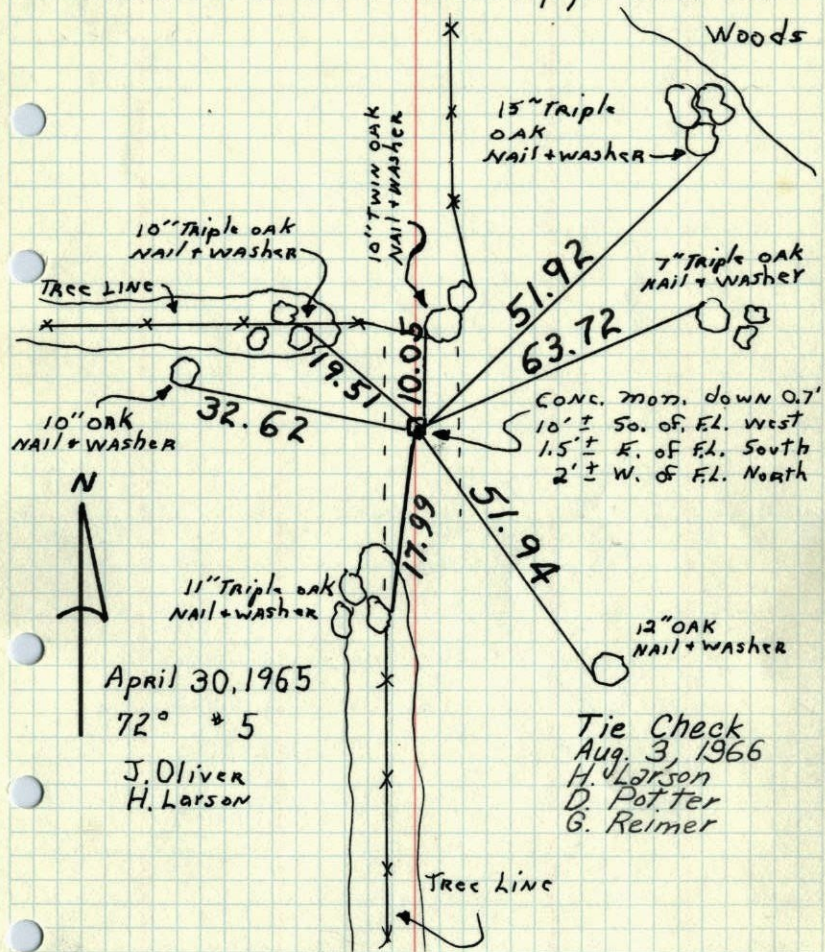 Woods
15" Triple
OAK
NAil + WAsher
10" TWIN OAK
NAil + WAsher
10" Triple OAK
NAil + WAsher
Tree Line
7" Triple OAK
NAil + WAsher
51.92
63.72
10.05
19.51
32.62
10" OAK
NAil + WAsher
Conc. mon. down 0.7'
10' ± So. of F.L. West
1.5' ± E. of F.L. South
2' ± W. of F.L. North
N
17.99
51.94
11" Triple OAK
NAil + WAsher
12" OAK
NAil + WAsher
April 30, 1965
72° # 5
J. Oliver
H. Larson
Tie Check
Aug. 3, 1966
H. Larson
D. Potter
G. Reimer
Tree Line